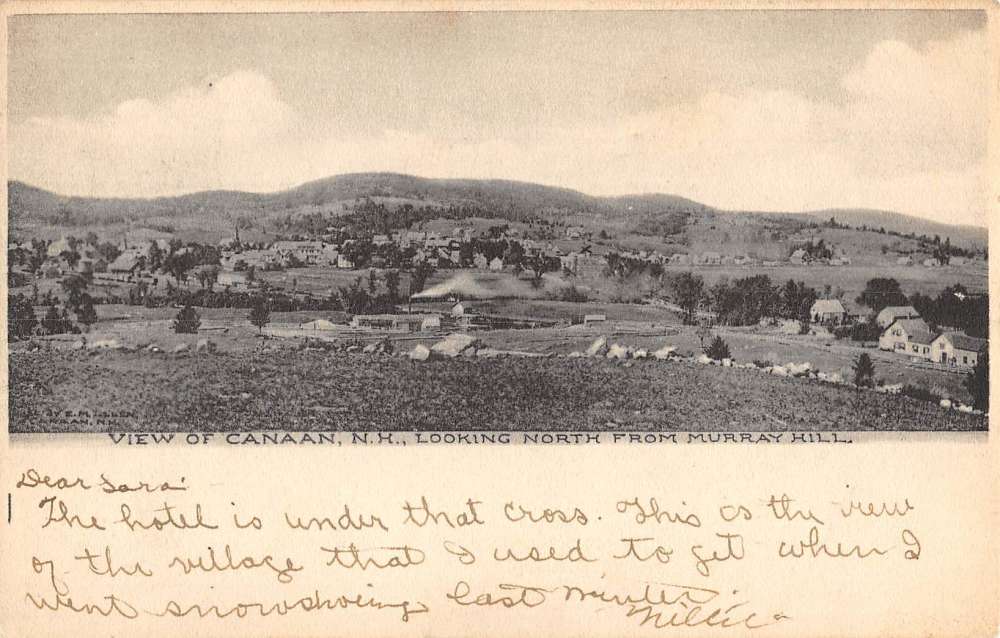 VIEW OF CANAAN, N.H., LOOKING NORTH FROM MURRAY HILL.
Dear Sara:
The hotel is under that cross. This is the view
of the village that I used to get when I
went snowshoeing last winter.